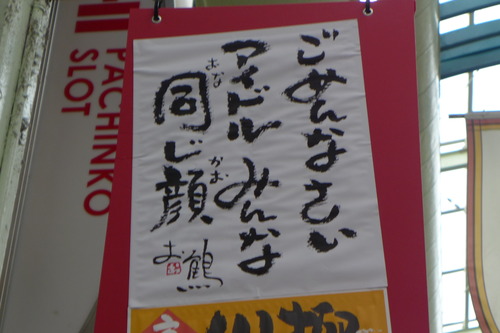 ごめんなさい
アイドルみんな
同じ顔
おな
かお
お鶴
PACHINKO
SLOT
川柳